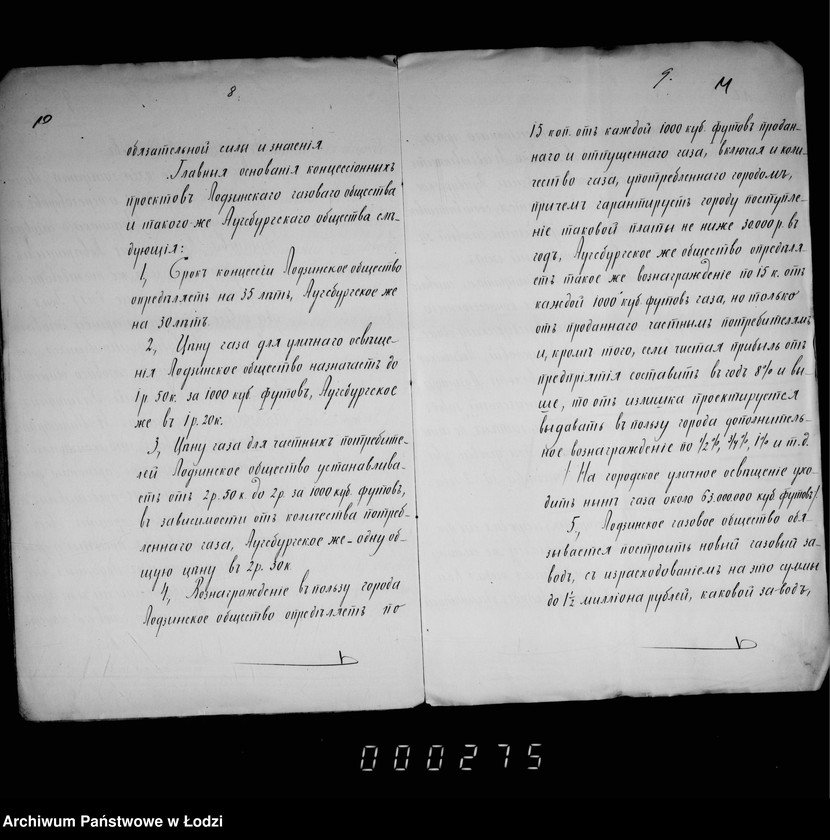 8.
10
обязательной силы и значенія.
Главныя основанія концессіонныхъ
проектовъ Лодзинскаго газоваго общества
и такого-же Аугсбургскаго общества слѣ-
дующія:
1, Срокъ концессіи Лодзинское общество
опредѣляетъ на 35 лѣтъ, Аугсбургское же
на 30 лѣтъ.
2, Цѣну газа для уличнаго освѣще-
нія Лодзинское общество назначаетъ до
1 р. 50 к. за 1000 куб. футовъ, Аугсбургское
же въ 1 р. 20 к.
3, Цѣну газа для частныхъ потребите-
лей Лодзинское общество устанавлива-
етъ отъ 2 р. 50 к. до 2 р. за 1000 куб. футовъ,
въ зависимости отъ количества потреб-
леннаго газа, Аугсбургское же - одну об-
щую цѣну въ 2 р. 30 к
4, Вознагражденіе въ пользу города
Лодзинское общество опредѣляетъ по
9.
15 коп. отъ каждой 1000 куб. футовъ продан-
наго и отпущеннаго газа, включая и коли-
чество газа, употребленнаго городомъ,
причемъ гарантируетъ городу поступле-
ніе таковой платы не ниже 30.000 р. въ
годъ, Аугсбургское же общество опредѣля-
етъ такое же вознагражденіе по 15 к. отъ
каждой 1000 куб. футовъ газа, но только
отъ проданнаго частнымъ потребителямъ
и, кромѣ того, если чистая прибыль отъ
предпріятія составитъ въ годъ 8% и вы-
ше, то отъ излишка проектируется
выдавать въ пользу города дополнитель-
ное вознагражденіе по ½%, ¾%, 1% и т.д.
/ На городское уличное освѣщеніе ухо-
дитъ нынѣ газа около 63.000.000 куб. футовъ/.
5, Лодзинское газовое общество обя-
зывается построить новый газовый за-
водъ, съ израсходованіемъ на это суммы
до 1½ милліона рублей, каковой заводъ,
000275
Archiwum Państwowe w Łodzi